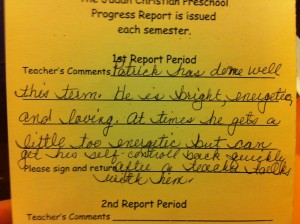 The Judah Christian Preschool
Progress Report is issued
each semester.
1st Report Period
Teacher's Comments Patrick has done well
this term. He is bright, energetic,
and loving. At times he gets a
little too energetic but can
get his self-control back quickly
Please sign and return after a teacher talks
with him.
2nd Report Period
Teacher's Comments: